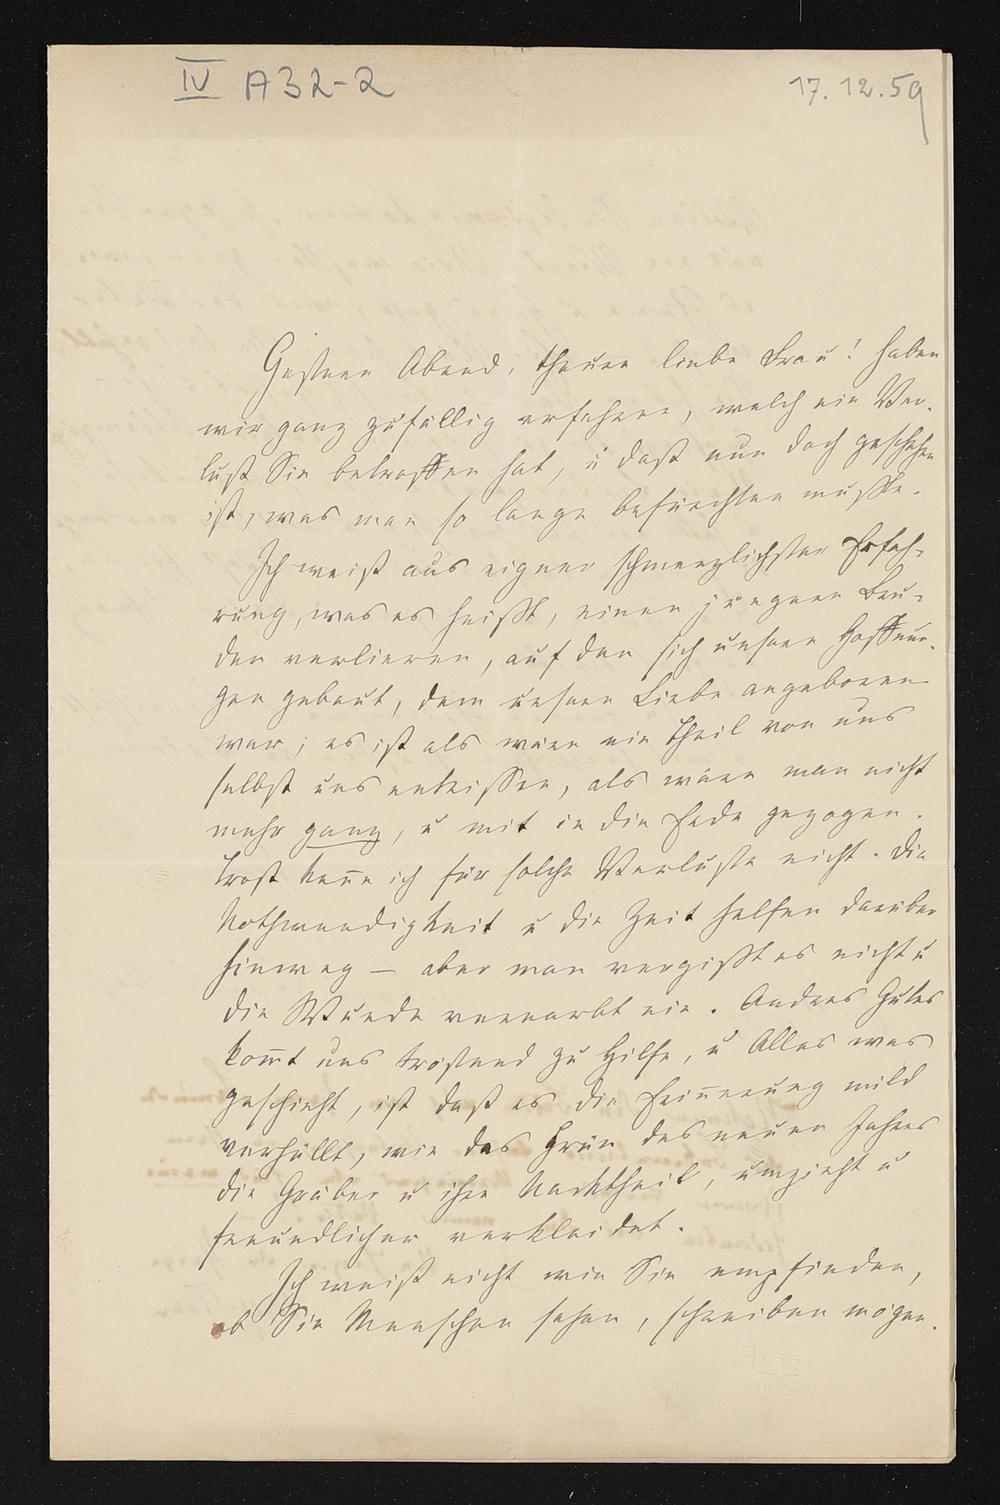 IV A32-2
17.12.59
Gestern Abend, theure liebe Frau! haben
wir ganz zufällig erfahren, welch ein Ver-
lust Sie betroffen hat, u daß nun doch geschehen
ist, was man so lange befürchten mußte.
Ich weiß aus eigner schmerzlichster Erfah-
rung, was es heißt, einen jüngern Bru-
der verlieren, auf den sich unsere Hoffnun-
gen gebaut, dem unsere Liebe angeboren
war; es ist als wäre ein Theil von uns
selbst uns entrissen, als wäre man nicht
mehr ganz, u mit in die Erde gezogen.
Trost keñe ich für solche Verluste nicht. Die
Nothwendigkeit u die Zeit helfen darüber
hinweg — aber man vergißt es nicht u
die Wunde vernarbt nie. Andres Gutes
kom̄t uns tröstend zu Hilfe, u Alles was
geschieht, ist daß es die Eriñerung mild
verhüllt, wie das Grün des neuen Jahres
die Gräber u ihre, umzieht u
freundlicher verkleidet.
Ich weiß nicht wie Sie empfinden,
ob Sie Menschen sehen, schreiben mögen.